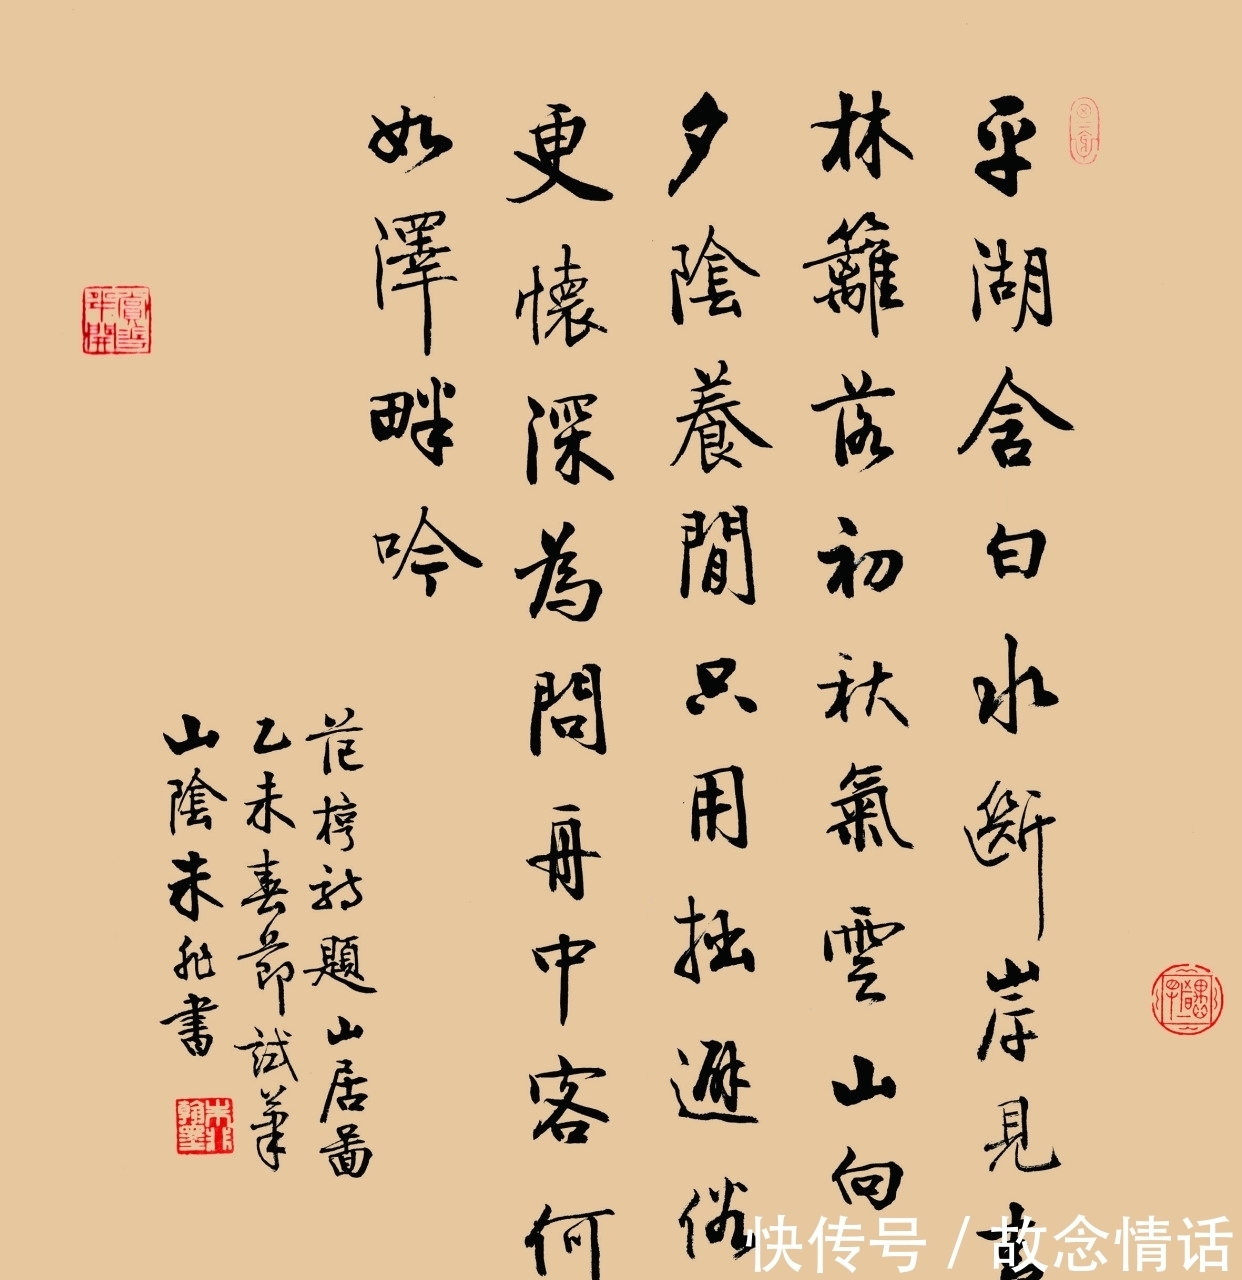 平湖含白水斷岸見青
林籬落初秋氣雲山向
夕陰養閒只用拙避俗
更懷深為問舟中客何
如澤畔吟
范梈詩題山居圖
乙未春節試筆
山陰朱非書
朱非翰墨
快传号/故念情话